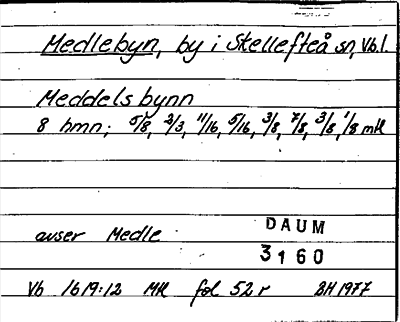 Medlebyn, by i Skellefteå sn, Vb.l.
Meddelsbynn
8 hmn; 5/8, 2/3, 11/16, 5/16, 3/8, 7/8, 3/8, 1/8 mtl
DAUM
avser Medle
3160
Vb 1619:12 Mtl fol 52 r BH 1977